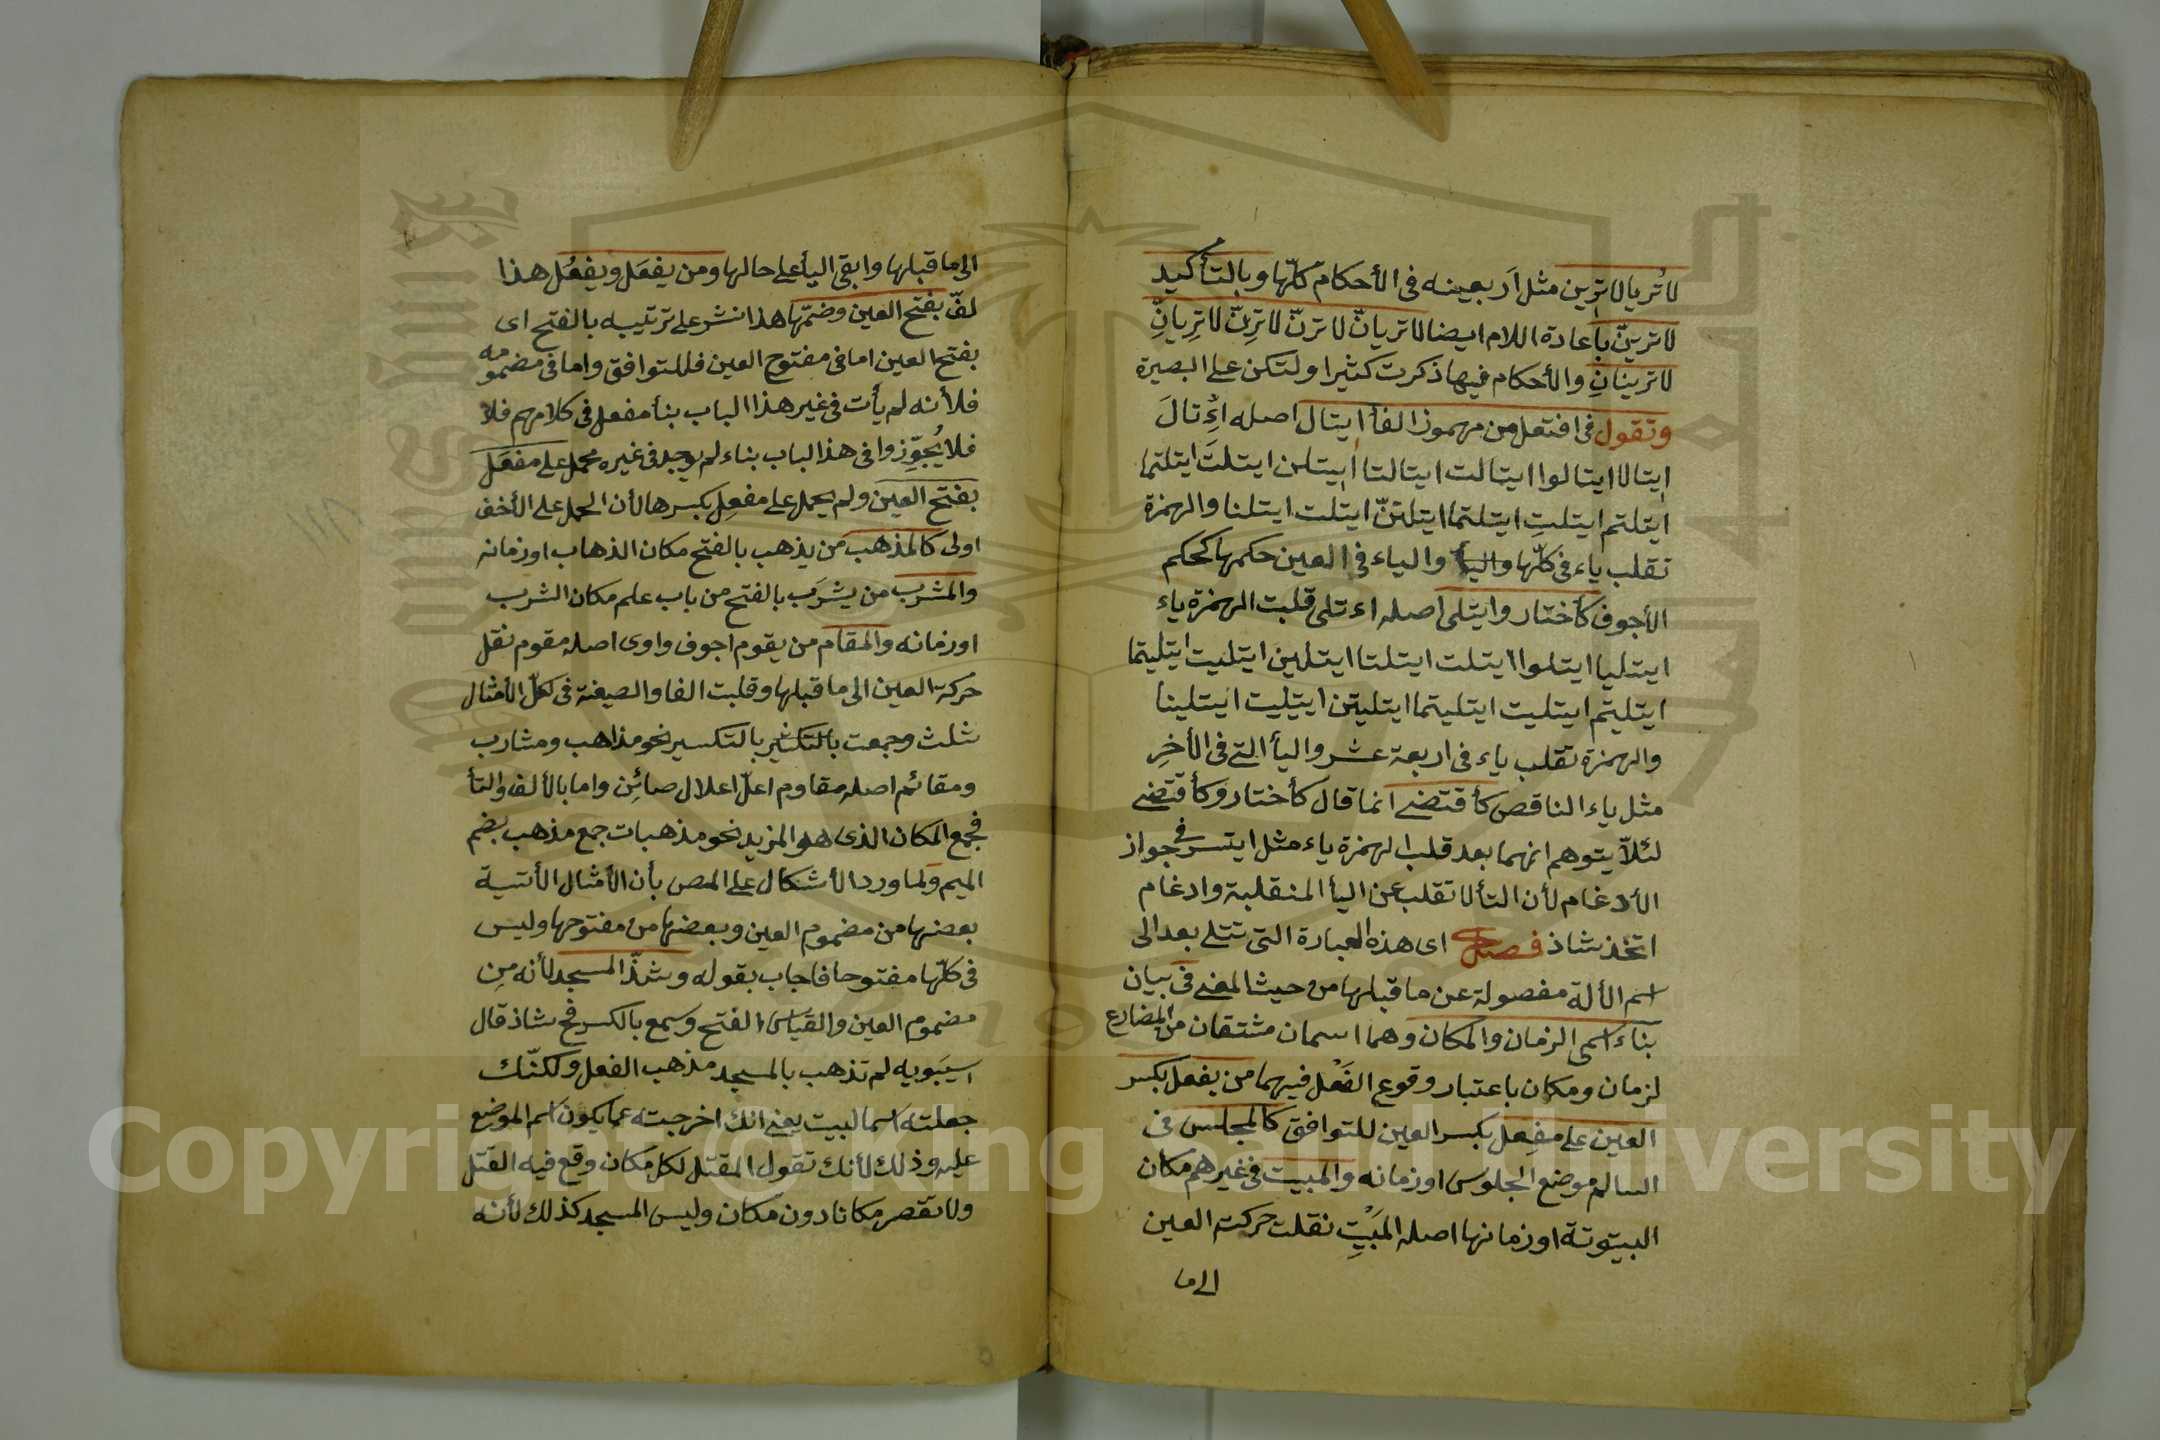 لا تُريا لا ترين مثل اَربعينه فى الأحكام كلّها وبالتأكيد
لا ترينّ بأعادة اللام ايضا لا تريانّ لا ترنّ لا ترِنّ لا ترِيانّ
لا ترينانِ والأحكام فيها ذكرت كثيرا ولتكن على البصيرة
وتقول فى افتعل من مهموز الفأ ايتال اصله اُءِتالَ
ايتالا ايتالوا ايتالت ايتالتا ايتلن ايتلتَ ايتلتما
ايتلتم ايتلتِ ايتلتما ايتلتنّ ايتلت ايتلنا والهمزة
تقلب ياء فى كلّها والياء فى العين حكمها كحكم
الأجوف كأختار وايتلى اصله اءتلى قلبت الهمزة ياء
ايتليا ايتلوا ايتلت ايتلتا ايتلين ايتليت ايتليتما
ايتليتم ايتليت ايتليتما ايتليتن ايتليت ايتلينا
والهمزة تقلب ياء فى اربعة عشر واليأ التى فى الأخِرِ
مثل ياء الناقص كأقتضى انما قال كأختار وكأقتضى
لئلاّ يتوهم انهما بعد قلب الهمزة ياء مثل ايتسر فى جواز
الأدغام لأن التأ لا تقلب عن اليأ المنقلبة وادغام
اتخذ شاذ فصل اى هذه العبارة التى تتلى بعد الى
اسم الألة مفصولة عن ما قبلها من حيث المعنى فى بيان
بناء اسمى الزمان والمكان وهما اسمان مشتقان من المضارع
لزمان ومكان باعتبار وقوع الفَعْل فيهما من يفعل بكسر
العين على مفعِل بكسر العين للتوافق كالمجلس فى
السالم موضع الجلوس او زمانه والمبيت فى غيرهم مكان
البيتوتة او زمانها اصله المَبْيِت نقلت حركة العين
الى ما
الى ما قبلها وابقى اليأ على حالها ومن يفعَل ويفعُل هذا
لفّ بفتح العين وضمّها هذا نشر على ترتيبه بالفتح اى
بفتح العين اما فى مفتوح العين فللتوافق واما فى مضمومه
فلأنه لم يأت فى غير هذا الباب بنأ مفعل فى كلامهم فلا
فلا يُجوّزوا فى هذا الباب بناء لم يوجد فى غيره محمل على مفعَل
بفتح العين ولم يحمل على مفعِل بكسرها لأن الحمل على الأخف
اولى كالمذهب من يذهب بالفتح مكان الذهاب او زمانه
والمشرب من يشرَب بالفتح من باب علم مكان الشرب
او زمانه والمقام من يقوم اجوف واوى اصله مقوم نقل
حركة العين الى ما قبلها وقلبت الفا والصيغة فى كلّ الأمثال
ثلث وجمعت بالتكثير بالتكسير نحو مذاهب ومشارب
ومقائم اصله مقاوم اعلّ اعلال صائِن واما بالألف والتأ
فجمع المكان الذى هو المزيد نحو مذهبات جمع مذهب بضم
الميم ولما ورد الأشكال على المص بأن الأمثال الأتية
بعضها من مضموم العين وبعضها من مفتوحها وليس
فى كلّها مفتوحا فاجاب بقوله وشذّ المسجد لأنه مِن
مضموم العين والقياس الفتح وسمع بالكسر فح شاذ قال
سيبَويه لم تذهب بالمسجد مذهب الفعل ولكنّك
جعلته اسما لبيت يعنى انك اخرجته عما يكون اسم الموضع
عليه وذلك لأنك تقول المقتل لكل مكان وقع فيه القتل
ولا تقصر مكانا دون مكان وليس المسجد كذلك لأنه
Copyright © King Saud University